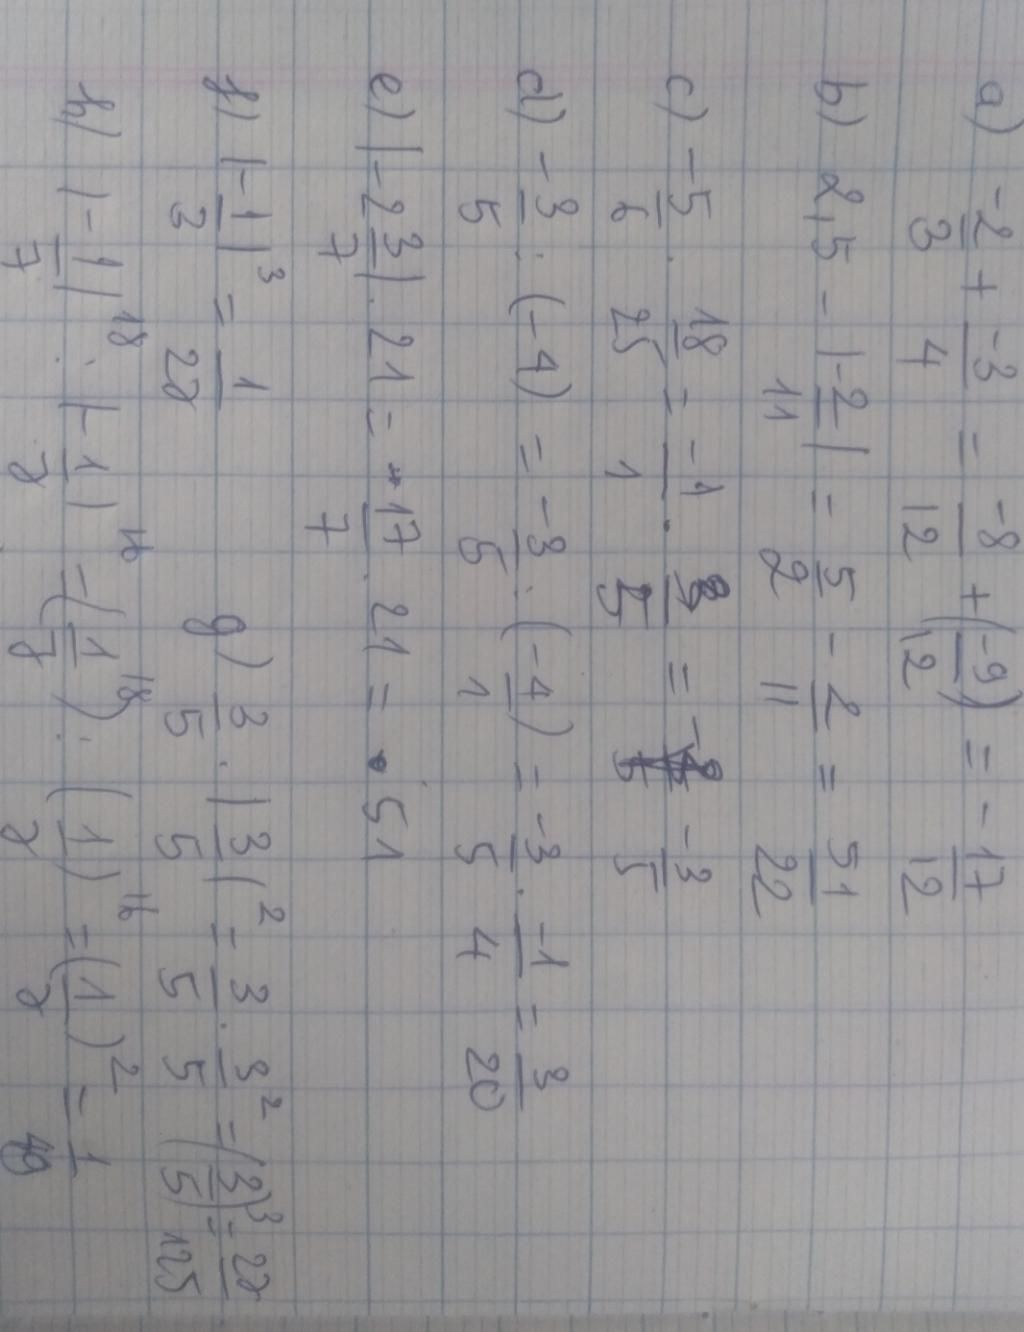 a) -2/3 + -3/4 = -8/12 + (-9/12) = -17/12
b) 2,5 - |-2/11| = 5/2 - 2/11 = 51/22
c) -5/6 · 18/25 = -1/1 · 3/5 = -3/5
d) -3/5 : (-4) = -3/5 : (-4/1) = -3/5 · -1/4 = 3/20
e) |-2 3/7| · 21 = 17/7 · 21 = 51
f) |-1/3|³ = 1/27 g) 3/5 · |3/5|² = 3/5 · 3/5² = (3/5)³ = 27/125
h) |-1/7|¹⁸ : |-1/7|¹⁶ = (1/7)¹⁸ : (1/7)¹⁶ = (1/7)² = 1/49